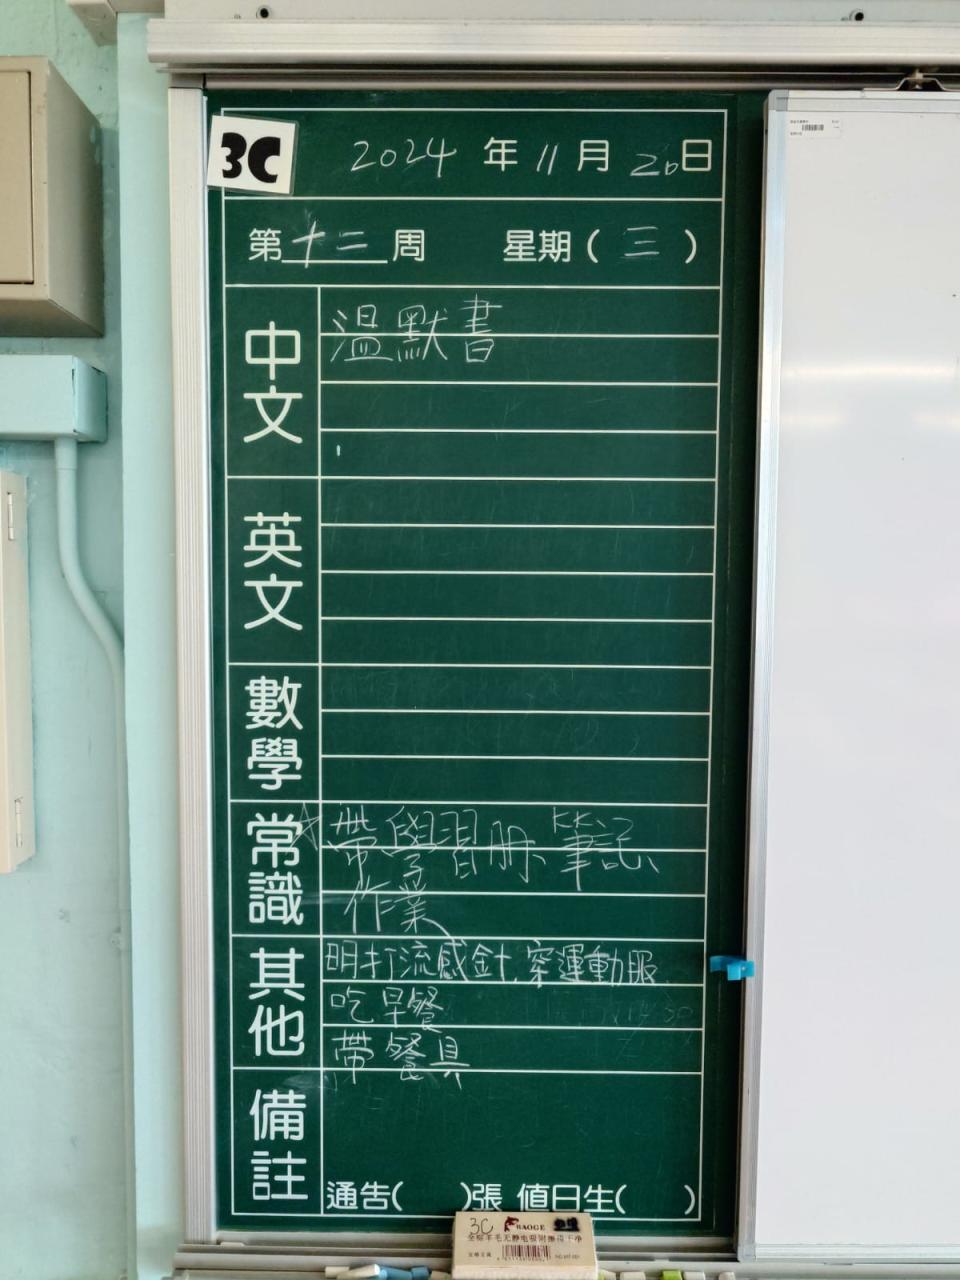 3C
2024年11月20日
第十二周 星期(三)
中文
溫默書
英文
數學
常識
☆帶學習冊、筆記、
作業
其他
明打流感針,穿運動服
吃早餐
帶餐具
備註
通告( )張 值日生( )
3C BAOGE